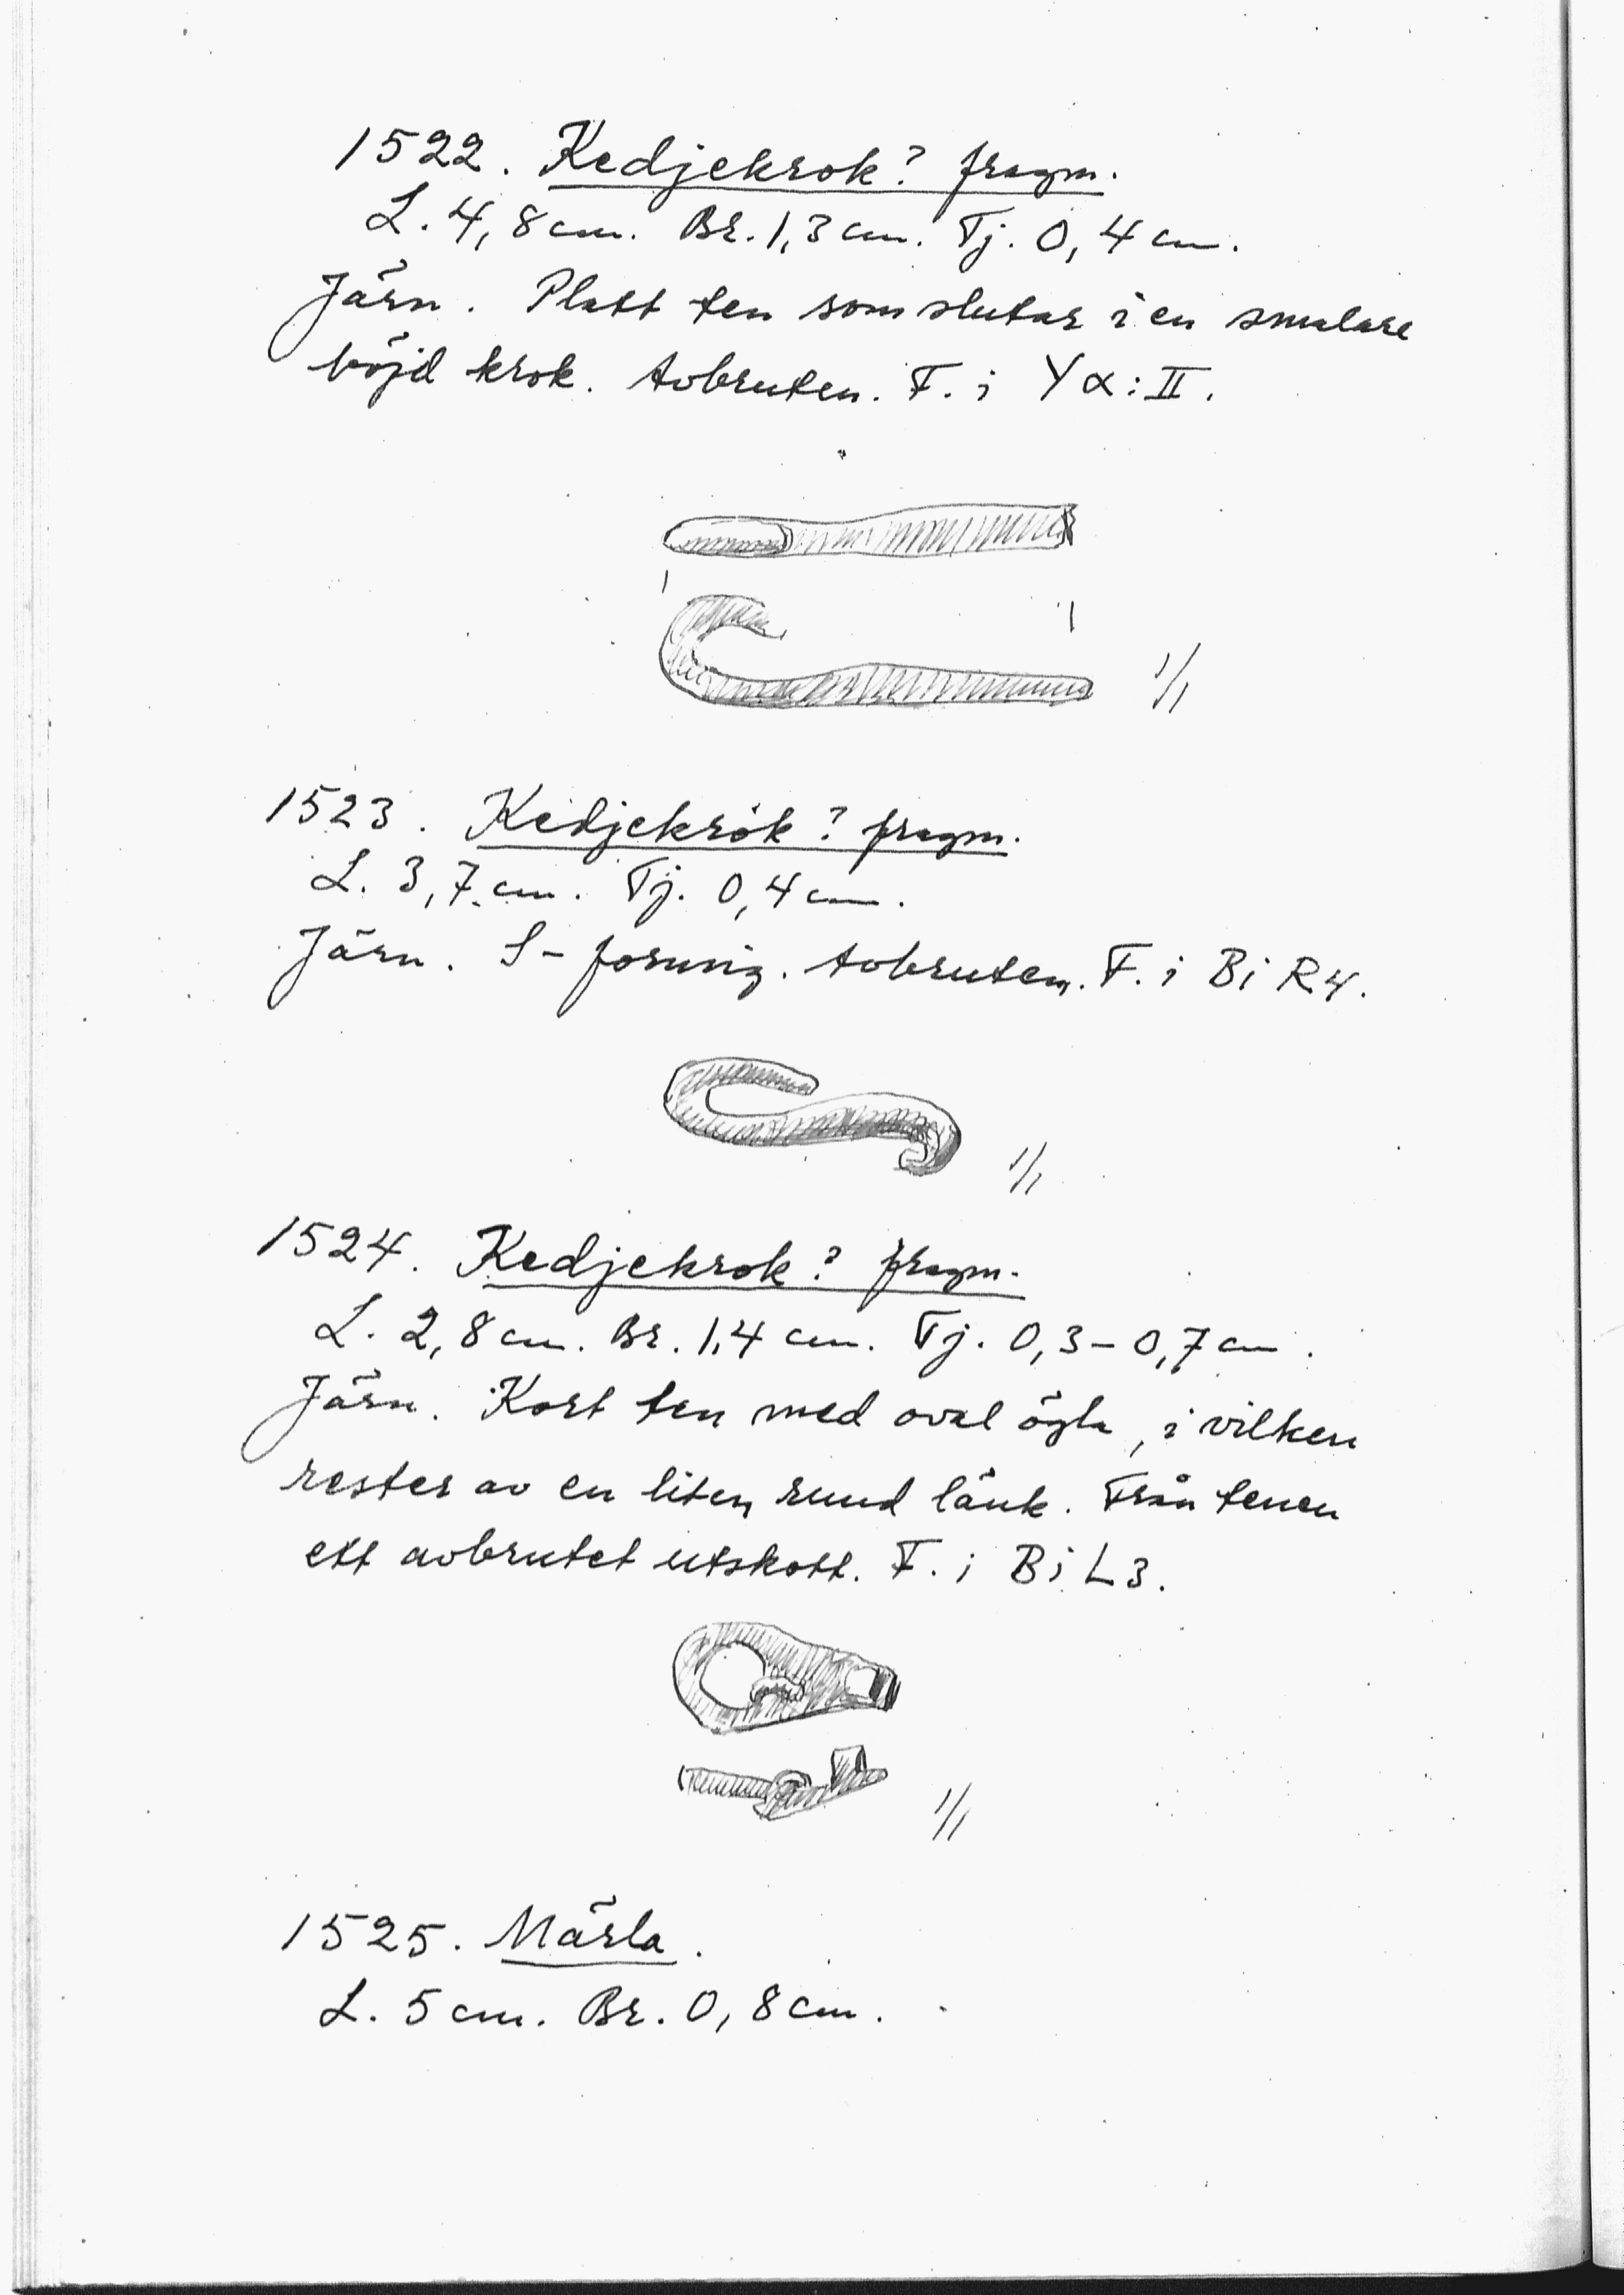 1522. Kedjekrok? fragm.
L. 4,8 cm. Br. 1,3 cm. Tj. 0,4 cm.
Järn. Platt ten som slutar i en smalare
böjd krok. Avbruten. F. i Y α: II.
1/1
1523. Kedjekrok? fragm.
L. 3,7 cm. Tj. 0,4 cm.
Järn. S-formig. Avbruten. F. i Bi R4.
1/1
1524. Kedjekrok? fragm.
L. 2,8 cm. Br. 1,4 cm. Tj. 0,3-0,7 cm.
Järn. Kort ten med oval ögla, i vilken
rester av en liten rund länk. Från tenen
ett avbrutet utskott. F. i Bi L3.
1/1
1525. Märla.
L. 5 cm. Br. 0,8 cm.